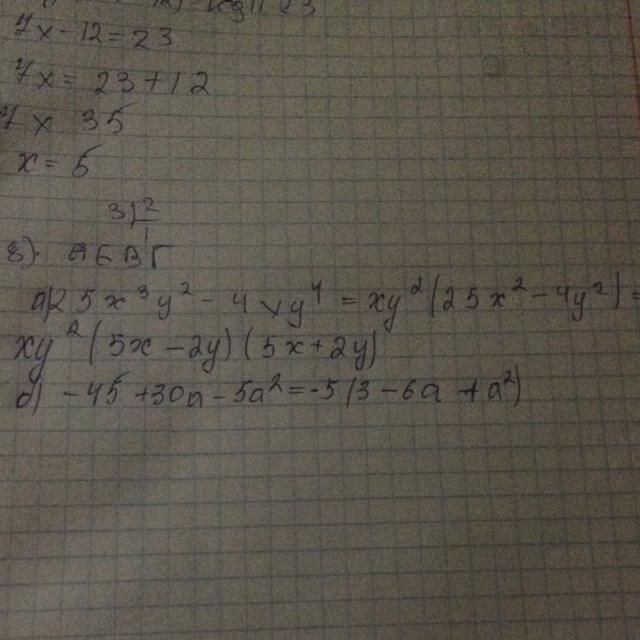 7x-12=23
7x= 23+12
7x 35
x= 5
3) 2
8). АБВГ
а) 25x³y²-4xy⁴=xy²(25x²-4y²)=
xy²(5x-2y)(5x+2y)
б) -45+30a-5a²=-5(3-6a+a²)